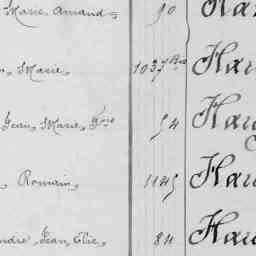 Marie Amand 90
Marie 1037 Bis Har
Jean Marie 54 Har
Romain 1145 Har
Jean Elie 84 Har